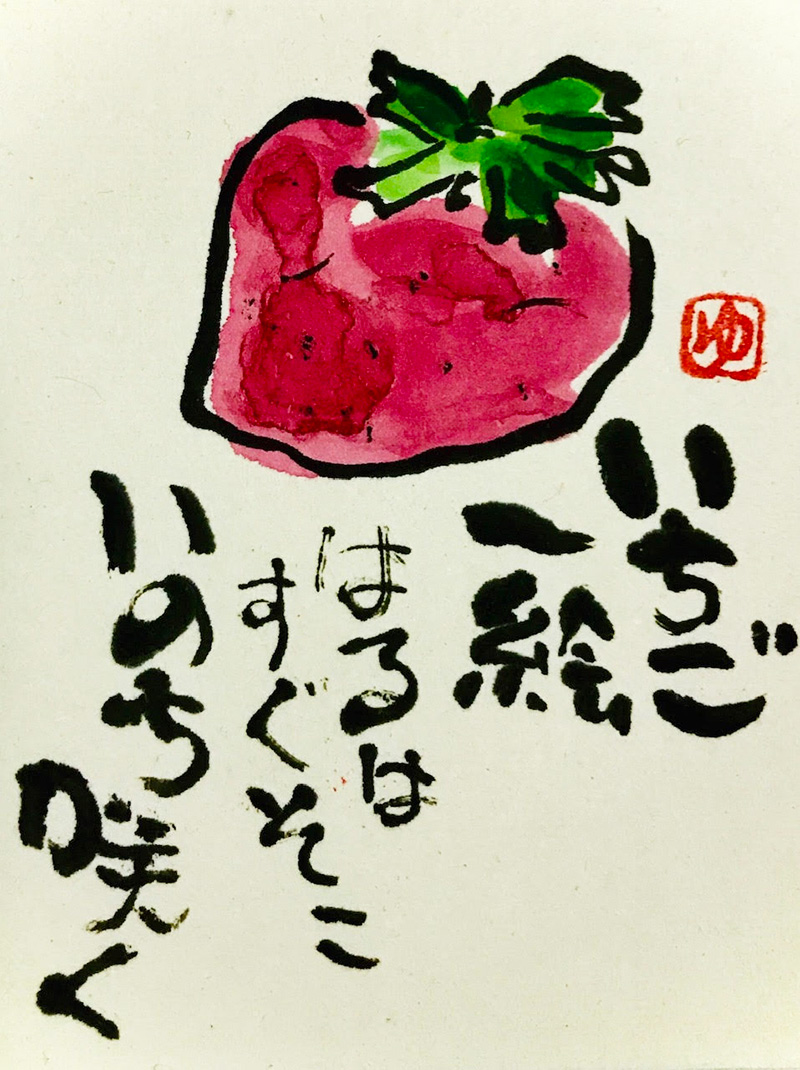 いちご
一絵
はるは
すぐそこ
いのち咲く
ゆ